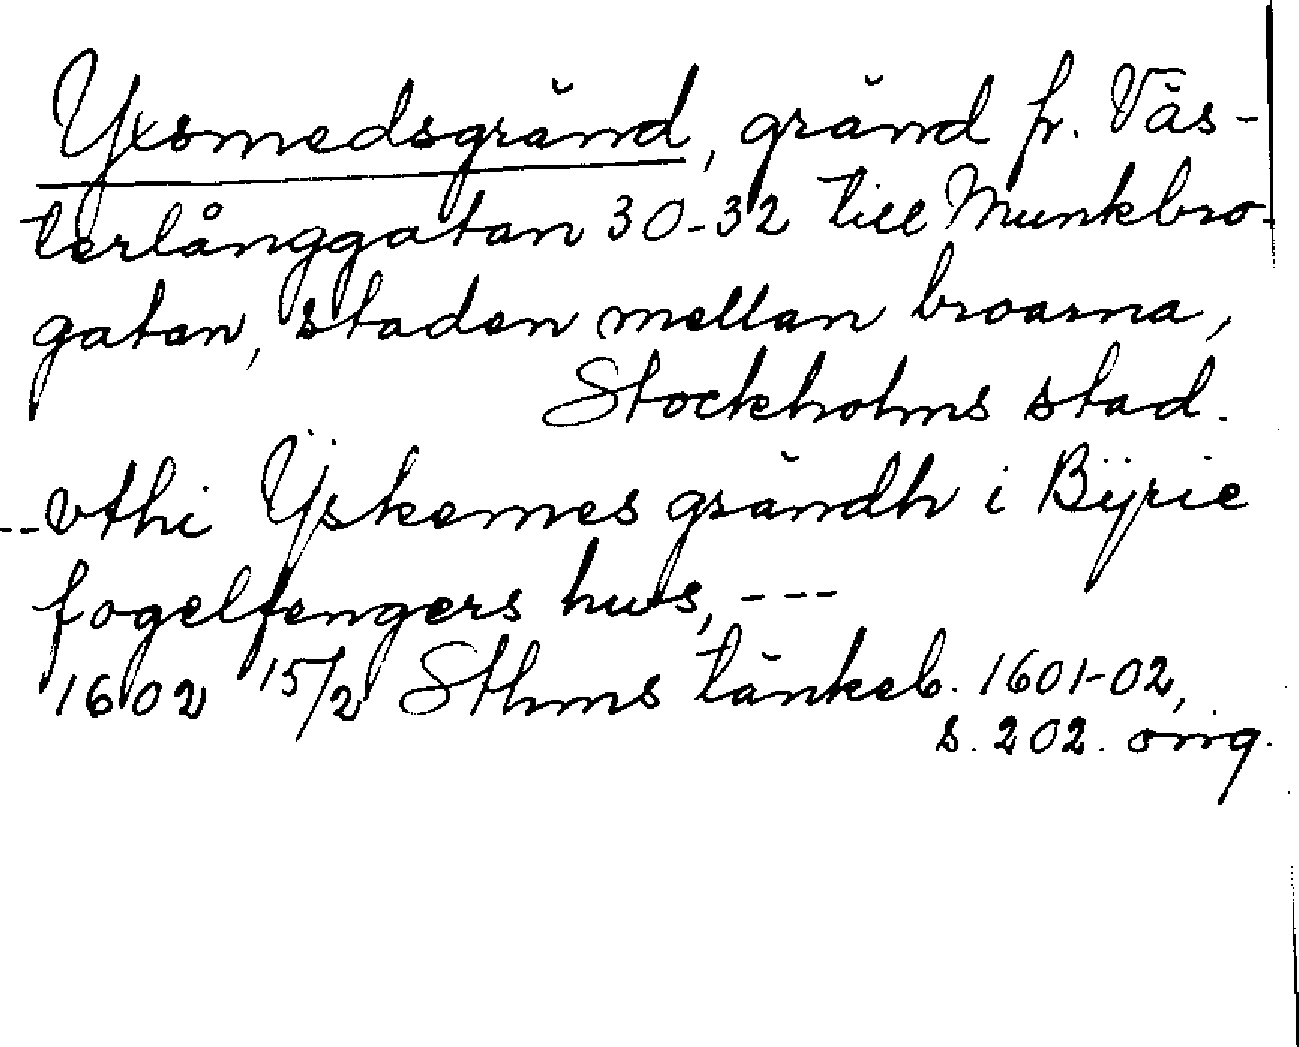 Yxsmedsgränd, gränd fr. Väs-
terlånggatan 30-32 till Munkbro-
gatan, staden mellan broarna,
Stockholms stad.
--vthi Ÿskemes grändh i Bÿrie
fogelfengers hus, ---
1602 15/2 Sthms tänkeb. 1601-02,
s. 202. orig.